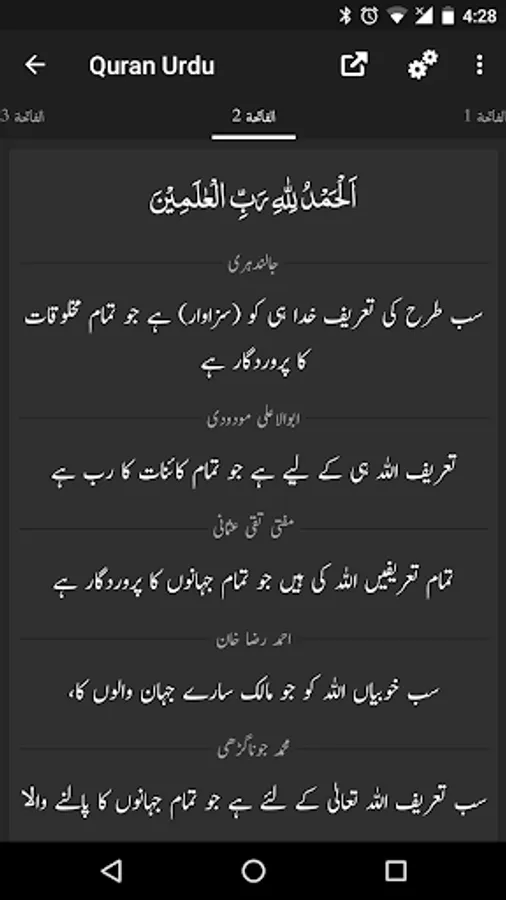 4:28
Quran Urdu
الفاتحة 1
الفاتحة 2
الفاتحة 3
اَلْحَمْدُ لِلّٰهِ رَبِّ الْعٰلَمِيْنَ
جالندہری
سب طرح کی تعریف خدا ہی کو (سزاوار) ہے جو تمام مخلوقات
کا پروردگار ہے
ابوالاعلی مودودی
تعریف اللہ ہی کے لیے ہے جو تمام کائنات کا رب ہے
مفتی تقی عثمانی
تمام تعریفیں اللہ کی ہیں جو تمام جہانوں کا پروردگار ہے
احمد رضا خان
سب خوبیاں اللہ کو جو مالک سارے جہان والوں کا،
محمد جوناگڑھی
سب تعریف اللہ تعالٰی کے لئے ہے جو تمام جہانوں کا پالنے والا